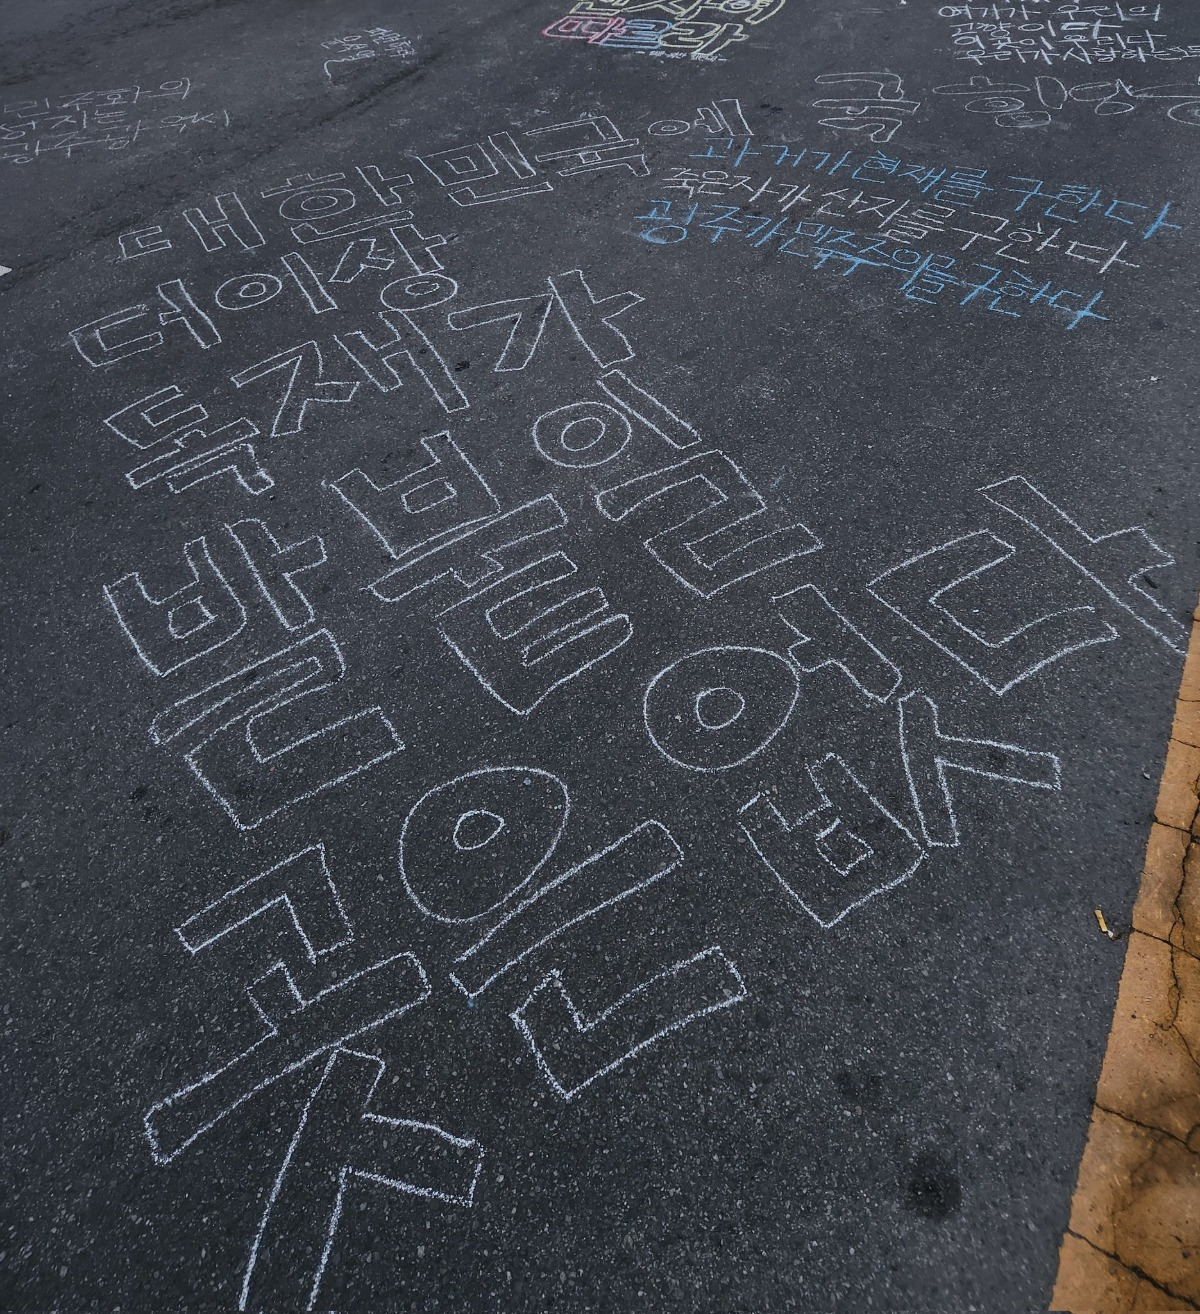 산자여
따르라
여기가 우리의
민주화의
성지는
광주광역시
대한민국에
더이상
독재가
발붙일
곳은 없다
과거가 현재를 구한다
죽은자가 산자를 구한다
광주가 민주주의를 구한다